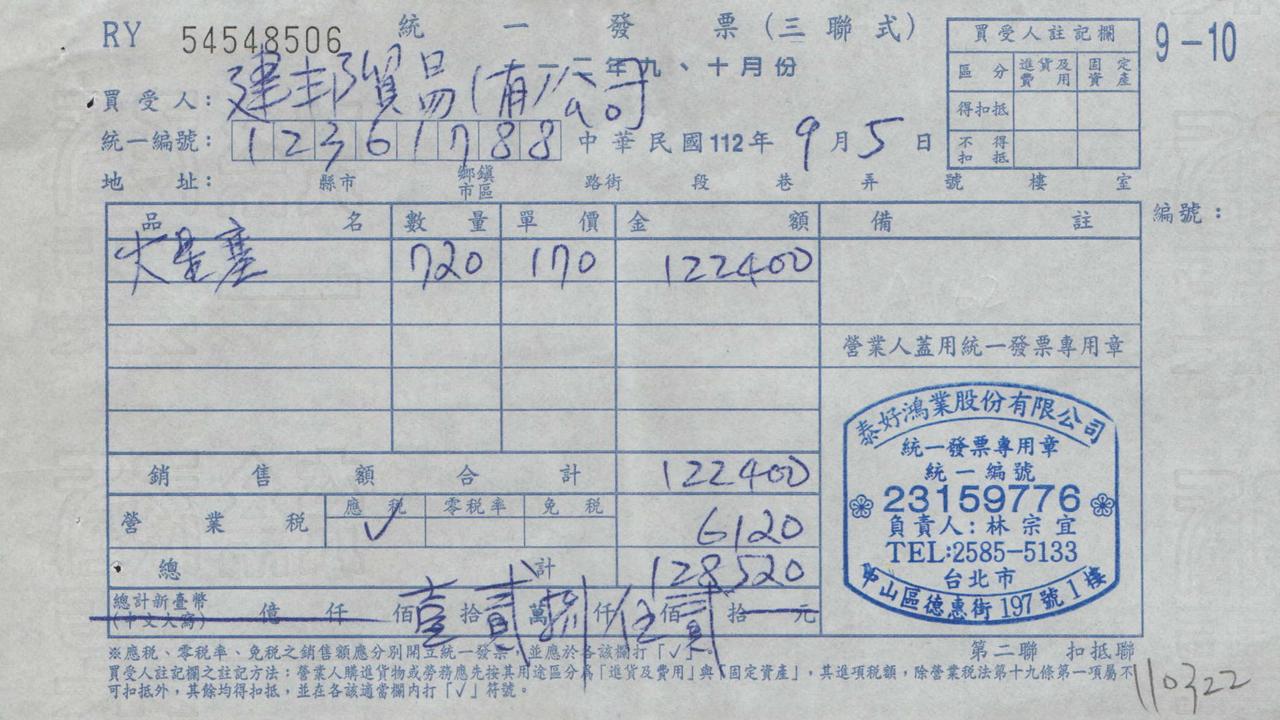 RY 54548506 統一發票(三聯式) 9-10
一一二年九、十月份
買受人: 建邦貿易(有)公司
統一編號: 12361788 中華民國112年9月5日
地址: 縣市 鄉鎮市區 路街 段 巷 弄 號 樓 室
買受人註記欄
區分 進貨及費用 固定資產
得扣抵
不得扣抵
編號:
品名 數量 單價 金額 備註
火星塞 720 170 122400
營業人蓋用統一發票專用章
銷售額合計 122400
營業稅 應稅 零稅率 免稅
✓ 6120
總計 128520
總計新臺幣
(中文大寫) 億 仟 佰壹拾貳萬捌仟伍佰貳拾 元
泰好鴻業股份有限公司
統一發票專用章
統一編號
23159776
負責人:林宗宜
TEL:2585-5133
台北市
中山區德惠街197號1樓
※應稅、零稅率、免稅之銷售額應分別開立統一發票,並應於各該欄打「✓」。
第二聯 扣抵聯
買受人註記欄之註記方法:營業人購進貨物或勞務應先按其用途區分為「進貨及費用」與「固定資產」,其進項稅額,除營業稅法第十九條第一項屬不
可扣抵外,其餘均得扣抵,並在各該適當欄內打「✓」符號。
110322